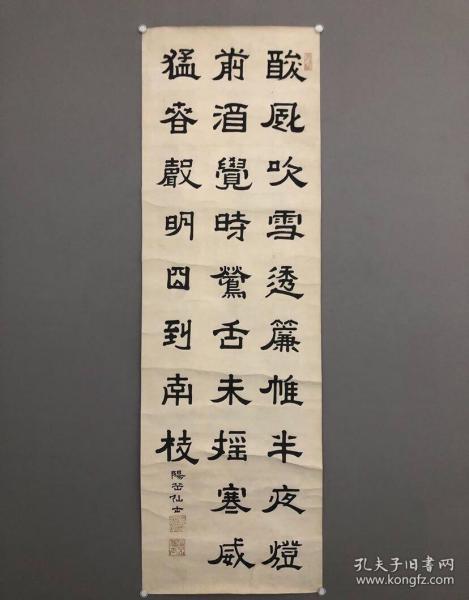 酸風吹雪透簾帷半夜燈
前酒覺時鶯舌未摇寒威
猛春聲明日到南枝
陽岳仙士
孔夫子旧书网
www.kongfz.com